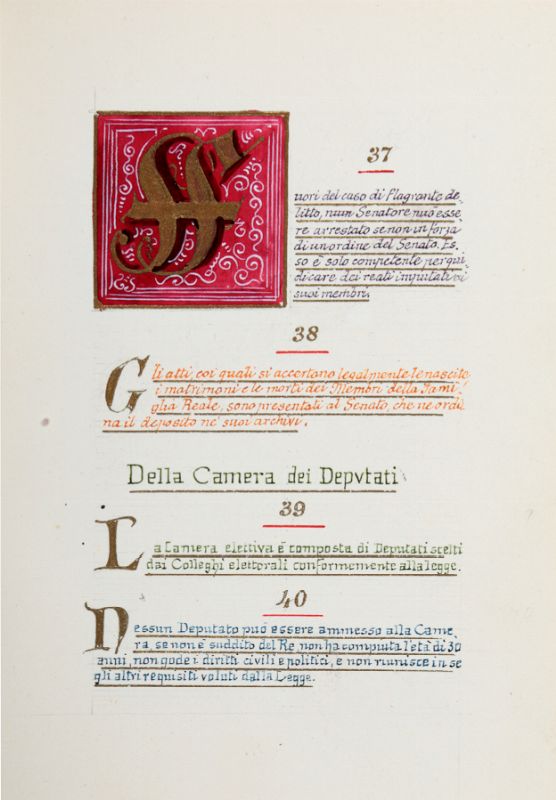 37
Fuori del caso di flagrante de-
litto, niun Senatore può esse-
re arrestato se non in forza
di un ordine del Senato. Es-
so è solo competente per giu-
dicare dei reati imputati ai
suoi membri.
38
Gli atti, coi quali si accertano legalmente le nascite
i matrimoni e le morti dei Membri della Fami-
glia Reale, sono presentati al Senato, che ne ordi-
na il deposito ne' suoi archivi.
Della Camera dei Depvtati
39
La Camera elettiva è composta di Deputati scelti
dai Colleghi elettorali conformemente alla legge.
40
Nessun Deputato può essere ammesso alla Came-
ra se non è suddito del Re non ha compiuta l'età di 30
anni, non gode i diritti civili e politici, e non riunisce in se
gli altri requisiti voluti dalla Legge.